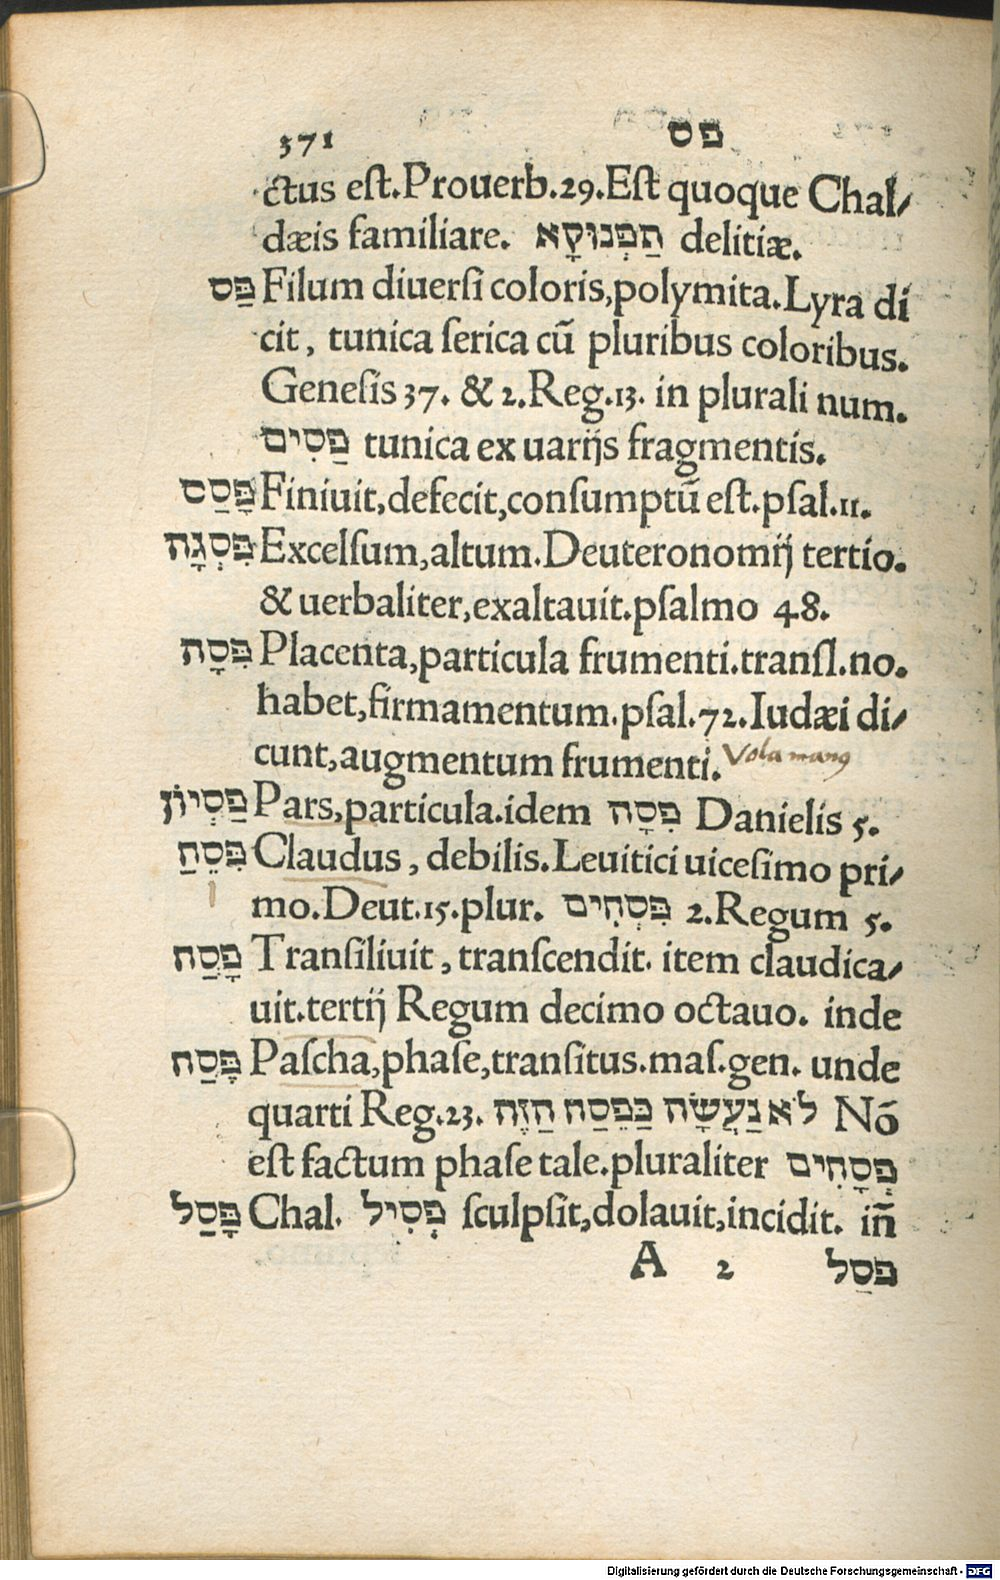 371 פס
ctus est.Prouerb.29.Est quoque Chal/
dæis familiare. תַפְנוּקָא delitiæ.
פַּס Filum diuersi coloris,polymita.Lyra di
cit, tunica serica cū pluribus coloribus.
Genesis 37. & 2.Reg.13. in plurali num.
פַּסִים tunica ex uarijs fragmentis.
פָּסַס Finiuit,defecit,consumptū est.psal.11.
פִּסְגָּה Excelsum,altum.Deuteronomij tertio.
& uerbaliter,exaltauit.psalmo 48.
פִּסָה Placenta,particula frumenti.transl.no.
habet,firmamentum.psal.72.Iudæi di/
cunt,augmentum frumenti. Vola manus
פַּסְיוֹן Pars,particula.idem פִּסָה Danielis 5.
פִּסֵּחַ Claudus, debilis.Leuitici uicesimo pri/
mo.Deut.15.plur. פִּסְחִים 2.Regum 5.
פָּסַח Transiliuit, transcendit. item claudica/
uit.tertij Regum decimo octauo. inde
פֶּסַח Pascha,phase,transitus.mas.gen. unde
quarti Reg.23. לֹא נַעֲשָׂה כַּפֵּסַח הַזֶּה Nō
est factum phase tale.pluraliter פְּסָחִים
פָּסַל Chal. פְּסִיל sculpsit,dolauit,incidit. iñ
A 2 פסַל
Digitalisierung gefördert durch die Deutsche Forschungsgemeinschaft - DFG